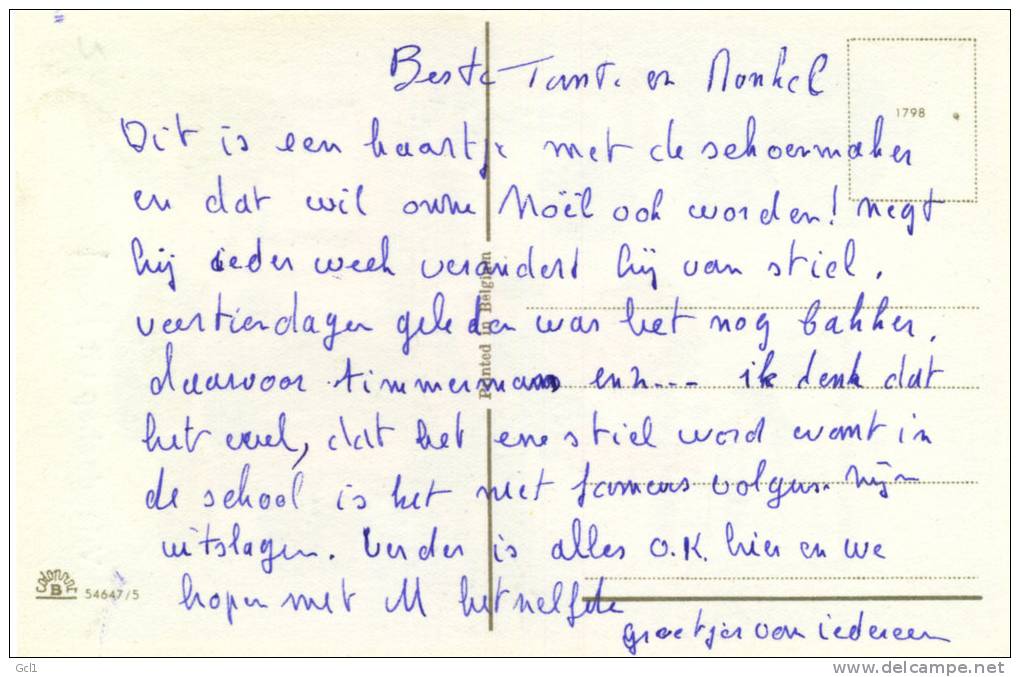 Beste Tante en Nonkel
1798
Dit is een kaartje met de schoenmaker
en dat wil onne Noël ook worden! negt
hij ieder week veranderd hij van stiel.
veertiendagen geleden was het nog bakker,
daarvoor timmerman enz... ik denk dat
het , dat het ene stiel word want in
de school is het niet fameus volgens zijn
uitslagen. Verder is alles O.K. hier en we
hopen met U hetzelfde
groetjes van iedereen
Printed in Belgium
COLORPRINT
B
54647/5
Gcl1
delcampe.net